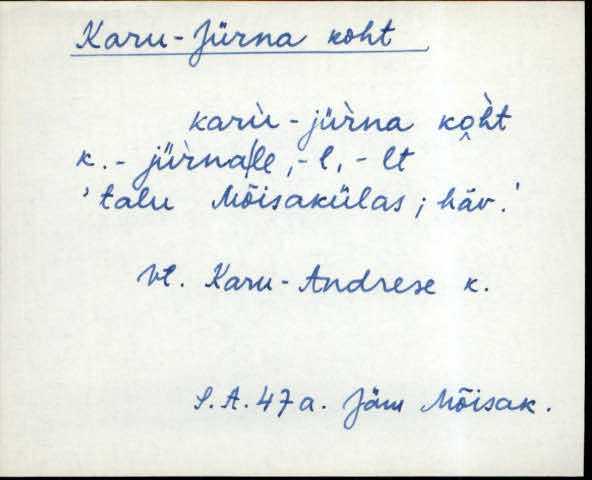 Karu-Jürna koht
karù - jür̀na ko̭h̀t
k. - jür̀na/lle, -l, -lt
'talu Mõisakülas; häv.'
vt. Karu-Andrese k.
S.A. 47 a. Jäm Mõisak.